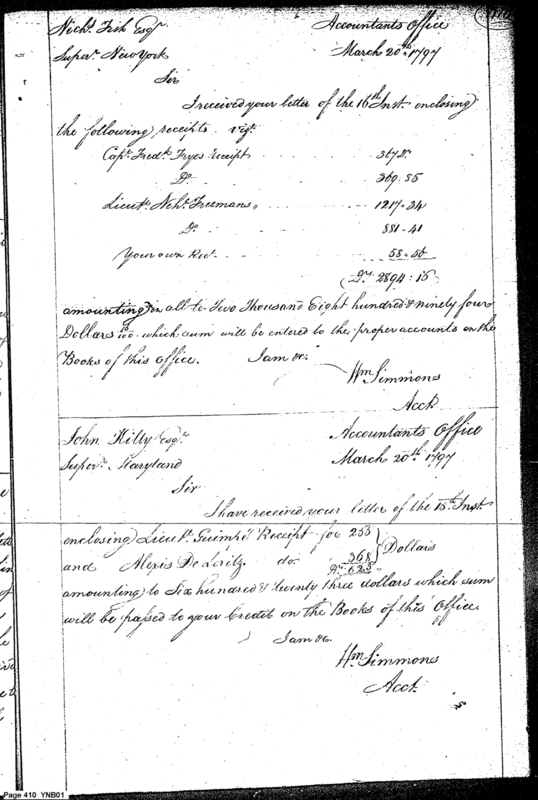 Nichs. Fish Esqr.
Superr. New York
Accountants Office
March 20th. 1797
Sir
I received your letter of the 16th Inst. enclosing
the following receipts. vizt.
Capt. Fredk. Fryes receipt 367 Ds.
Do. 369.85
Lieut. Nehh. Freemans " 1217.34
Do. 881.41
Your own Rect. 58.55
Drs. 2894.15
amounting in all to Two Thousand Eight hundred & ninety four
Dollars 15/100 which sum will be entered to the proper accounts on the
Books of this Office. I am &c.
Wm Simmons
Acct.
John Kilty Esqr.
Superr. Maryland
Accountants Office
March 20th. 1797
Sir
I have received your letter of the 15th. Inst.
enclosing Lieut. Receipt for 255
and Alexis De do. 368 Dollars
Drs. 623
amounting to Six hundred & twenty three dollars which sum
will be passed to your Credit on the Books of this Office.
I am &c.
Wm Simmons
Acct.
Page 410 YNB01